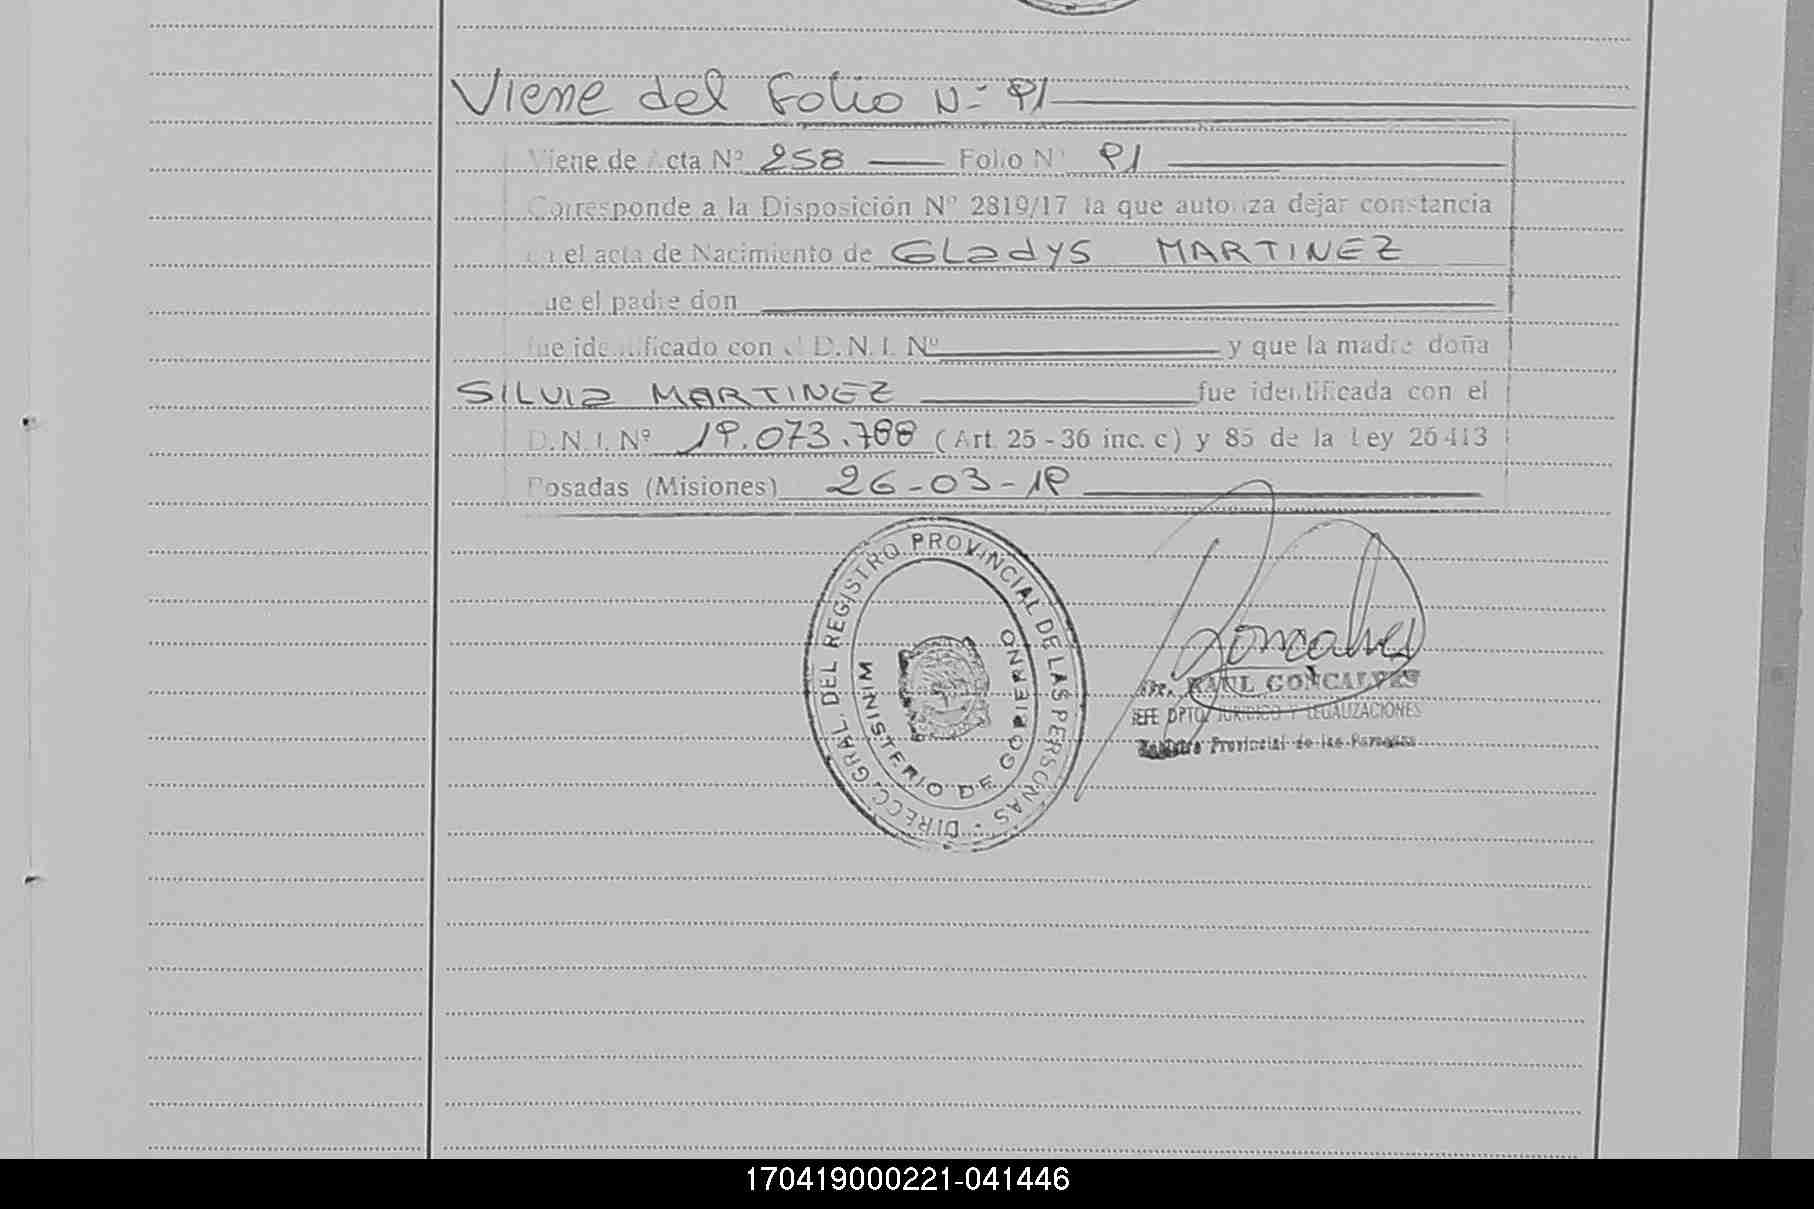 Viene del Folio Nº 91
Viene de Acta Nº 258 Folio Nº 91
Corresponde a la Disposición Nº 2819/17 la que autoriza dejar constancia
en el acta de Nacimiento de GLadyS MARTINEZ
que el padre don
fue identificado con el D.N.I. Nº y que la madre doña
SILVIa MARTINEZ fue identificada con el
D.N.I. Nº 19.073.788 (Art. 25 - 36 inc. c) y 85 de la Ley 26413
Posadas (Misiones) 26-03-19
DIRECC. GRAL DEL REGISTRO PROVINCIAL DE LAS PERSONAS
MINISTERIO DE GOBIERNO
Goncalves
RAUL GONCALVES
JEFE DPTO. JURIDICO Y LEGALIZACIONES
Registro Provincial de las Personas
170419000221-041446